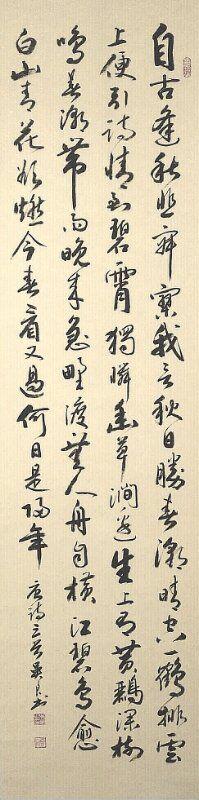 自古逢秋悲寂寥我言秋日勝春潮晴空一鶴排雲
上便引詩情到碧霄獨憐幽草澗邊生上有黃鸝深樹
鳴春潮帶雨晚來急野渡無人舟自橫江碧鳥愈
白山青花欲燃今春看又過何日是歸年 唐詩三首